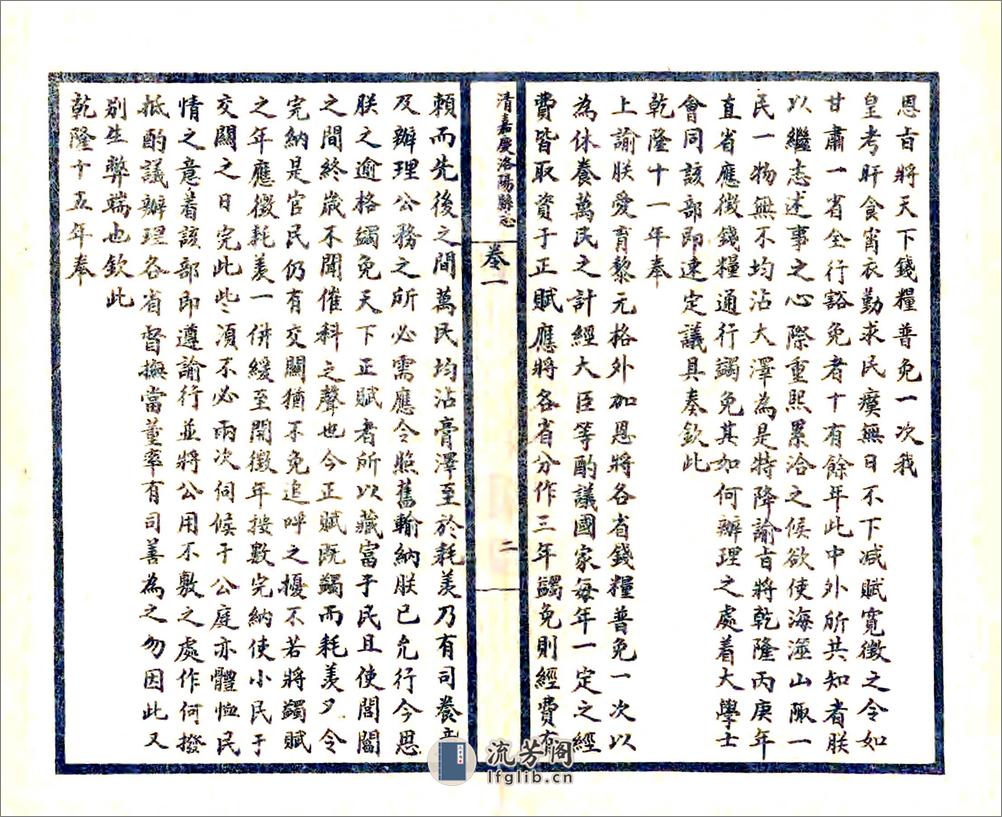 恩旨將天下錢糧普免一次我
皇考旰食宵衣勤求民瘼無日不下減賦寬徵之令如
甘肅一省全行豁免者十有餘年此中外所共知者朕
以繼志述事之心際重熙累洽之候欲使海澨山陬一
民一物無不均沾大澤為是特降諭旨將乾隆丙庚年
直省應徵錢糧通行蠲免其如何辦理之處着大學士
會同該部即速定議具奏欽此
乾隆十一年奉
上諭朕愛育黎元格外加恩將各省錢糧普免一次以
為休養萬民之計經大臣等酌議國家每年一定之經
費皆取資于正賦應將各省分作三年蠲免則經費有
清嘉慶洛陽縣志
卷一
二
賴而先後之間萬民均沾膏澤至於耗羨乃有司養廉
及辦理公務之所必需應令照舊輸納朕已允行今思
朕之逾格蠲免天下正賦者所以藏富于民且使閭閻
之間終歲不聞催科之聲也今正賦既蠲而耗羨夕令
完納是官民仍有交關猶不免追呼之擾不若將蠲賦
之年應徵耗羨一併緩至開徵年接數完納使小民于
交關之日完此些須不必兩次伺候于公庭亦體恤民
情之意着該部即遵諭行並將公用不敷之處作何撥
抵酌議辦理各省督撫當董率有司善為之勿因此又
別生弊端也欽此
乾隆十五年奉
流芳閣
lfglib.cn